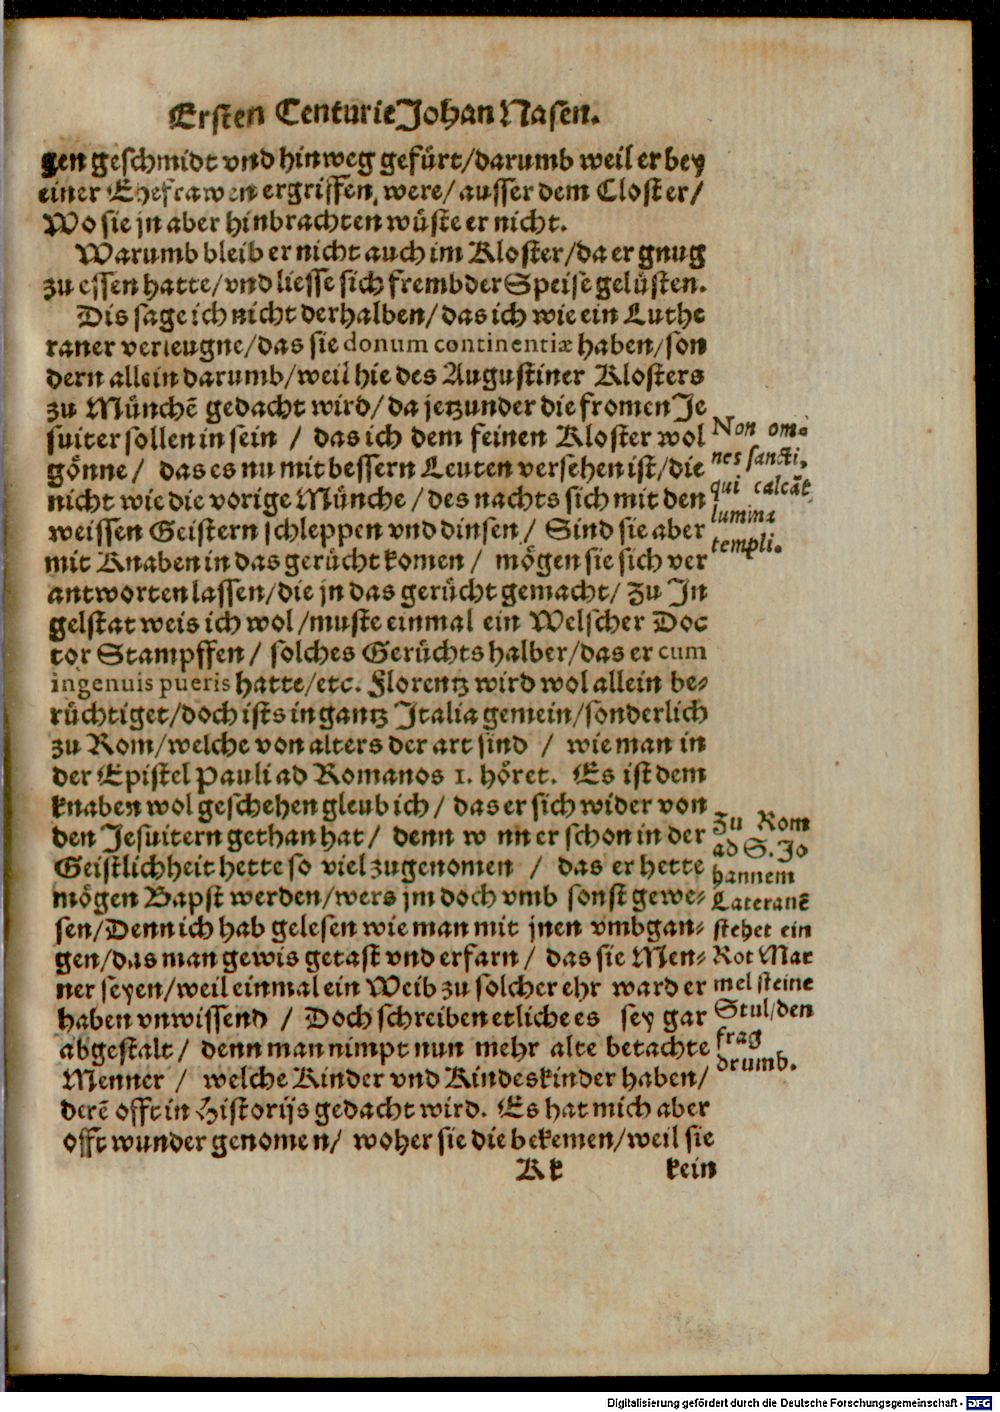 Ersten Centurie Johan Nasen.
gen geschmidt vnd hinweg gefürt/darumb weil er bey
einer Ehefrawen ergriffen were/ ausser dem Closter/
Wo sie jn aber hinbrachten wüste er nicht.
Warumb bleib er nicht auch im Kloster/da er gnug
zu essen hatte/vnd liesse sich frembder Speise gelüsten.
Dis sage ich nicht derhalben/das ich wie ein Luthe
raner verleugne/das sie donum continentiæ haben/son
dern allein darumb/weil hie des Augustiner Klosters
zu Münchē gedacht wird/da jetzunder die fromen Je
suiter sollen in sein / das ich dem feinen Kloster wol
gönne/ das es nu mit bessern Leuten versehen ist/die
nicht wie die vorige Münche/des nachts sich mit den
weissen Geistern schleppen vnd dinsen/ Sind sie aber
mit Knaben in das gerücht komen/ mögen sie sich ver
antworten lassen/die jn das gerücht gemacht/ Zu In
gelstat weis ich wol/muste einmal ein Welscher Doc
tor Stampffen/ solches Gerüchts halber/das er cum
ingenuis pueris hatte/etc. Florentz wird wol allein be⸗
rüchtiget/doch ists in gantz Italia gemein/sonderlich
zu Rom/welche von alters der art sind / wie man in
der Epistel Pauli ad Romanos 1. höret. Es ist dem
knaben wol geschehen gleub ich/ das er sich wider von
den Jesuitern gethan hat/ denn w nn er schon in der
Geistlichheit hette so viel zugenomen / das er hette
mögen Bapst werden/wers jm doch vmb sonst gewe⸗
sen/Denn ich hab gelesen wie man mit jnen vmbgan⸗
gen/das man gewis getast vnd erfarn/ das sie Men⸗
ner seyen/weil einmal ein Weib zu solcher ehr ward er
haben vnwissend / Doch schreiben etliche es sey gar
abgestalt/ denn man nimpt nun mehr alte betachte
Menner / welche Kinder vnd Kindeskinder haben/
derē offt in Historijs gedacht wird. Es hat mich aber
offt wunder genomen/ woher sie die bekemen/weil sie
Kk kein
Non om⸗
nes sancti,
qui calcāt
lumina
templi.
Zu Rom
ad S. Jo
hannem
Lateranē
stehet ein
Rot Mar
mel steine
Stul/den
frag
drumb.
Digitalisierung gefördert durch die Deutsche Forschungsgemeinschaft - DFG